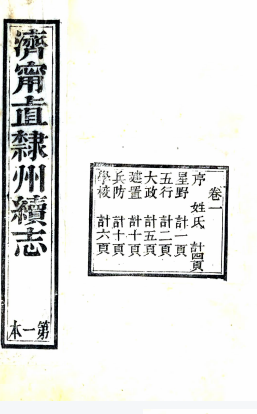 濟甯直隸州續志
第一本
卷一
序 姓氏 計四頁
星野 計一頁
五行 計二頁
大政 計五頁
建置 計十頁
兵防 計十頁
學校 計六頁